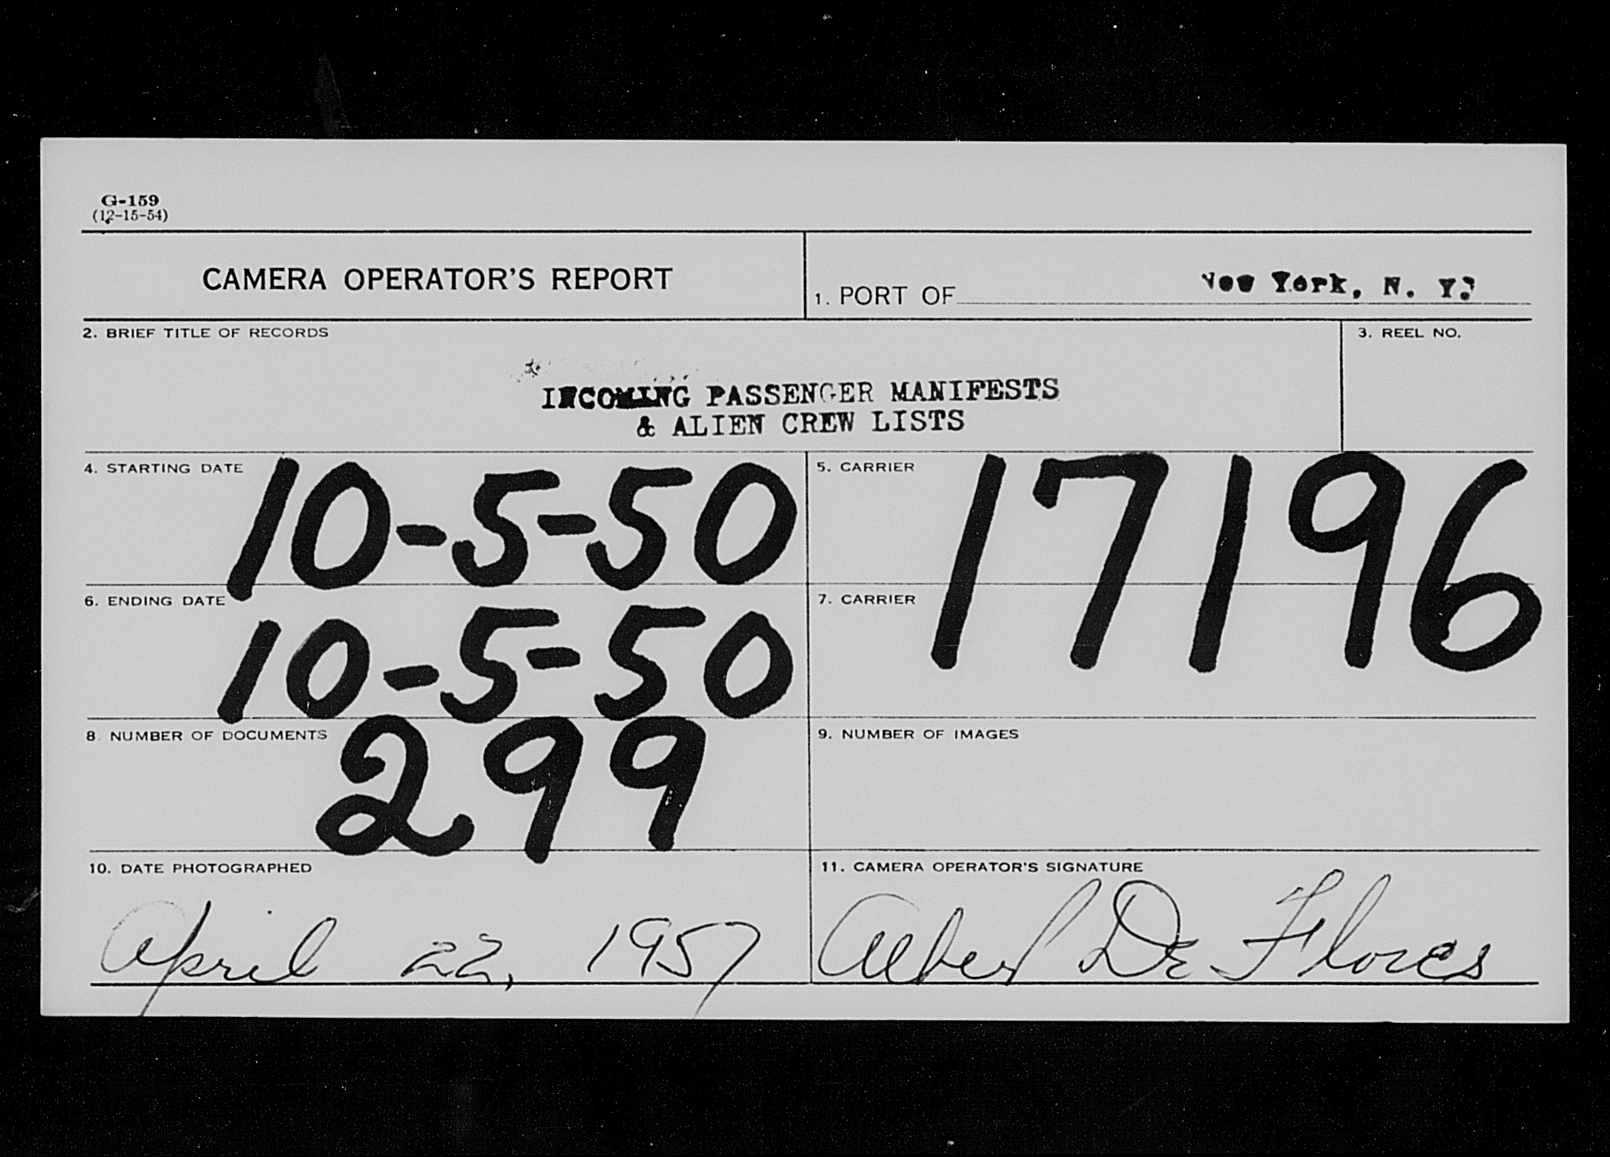 G-159
(12-15-54)
CAMERA OPERATOR'S REPORT
1. PORT OF New York, N. Y.
2. BRIEF TITLE OF RECORDS
3. REEL NO.
INCOMING PASSENGER MANIFESTS
& ALIEN CREW LISTS
4. STARTING DATE 10-5-50
5. CARRIER 17196
6. ENDING DATE 10-5-50
7. CARRIER
8. NUMBER OF DOCUMENTS 299
9. NUMBER OF IMAGES
10. DATE PHOTOGRAPHED
April 22, 1957
11. CAMERA OPERATOR'S SIGNATURE
Albert De Flores